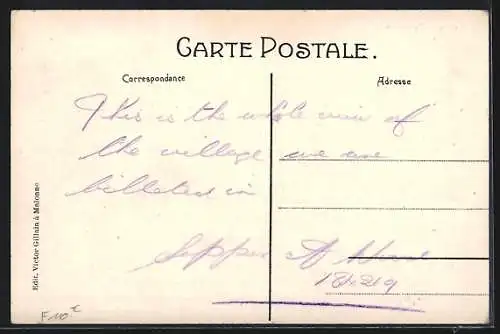 CARTE POSTALE.
Correspondance
Adresse
This is the whole view of
the village we are
billeted in
Sapper A
Edit. Victor Gillain à Malonne
F 10 €